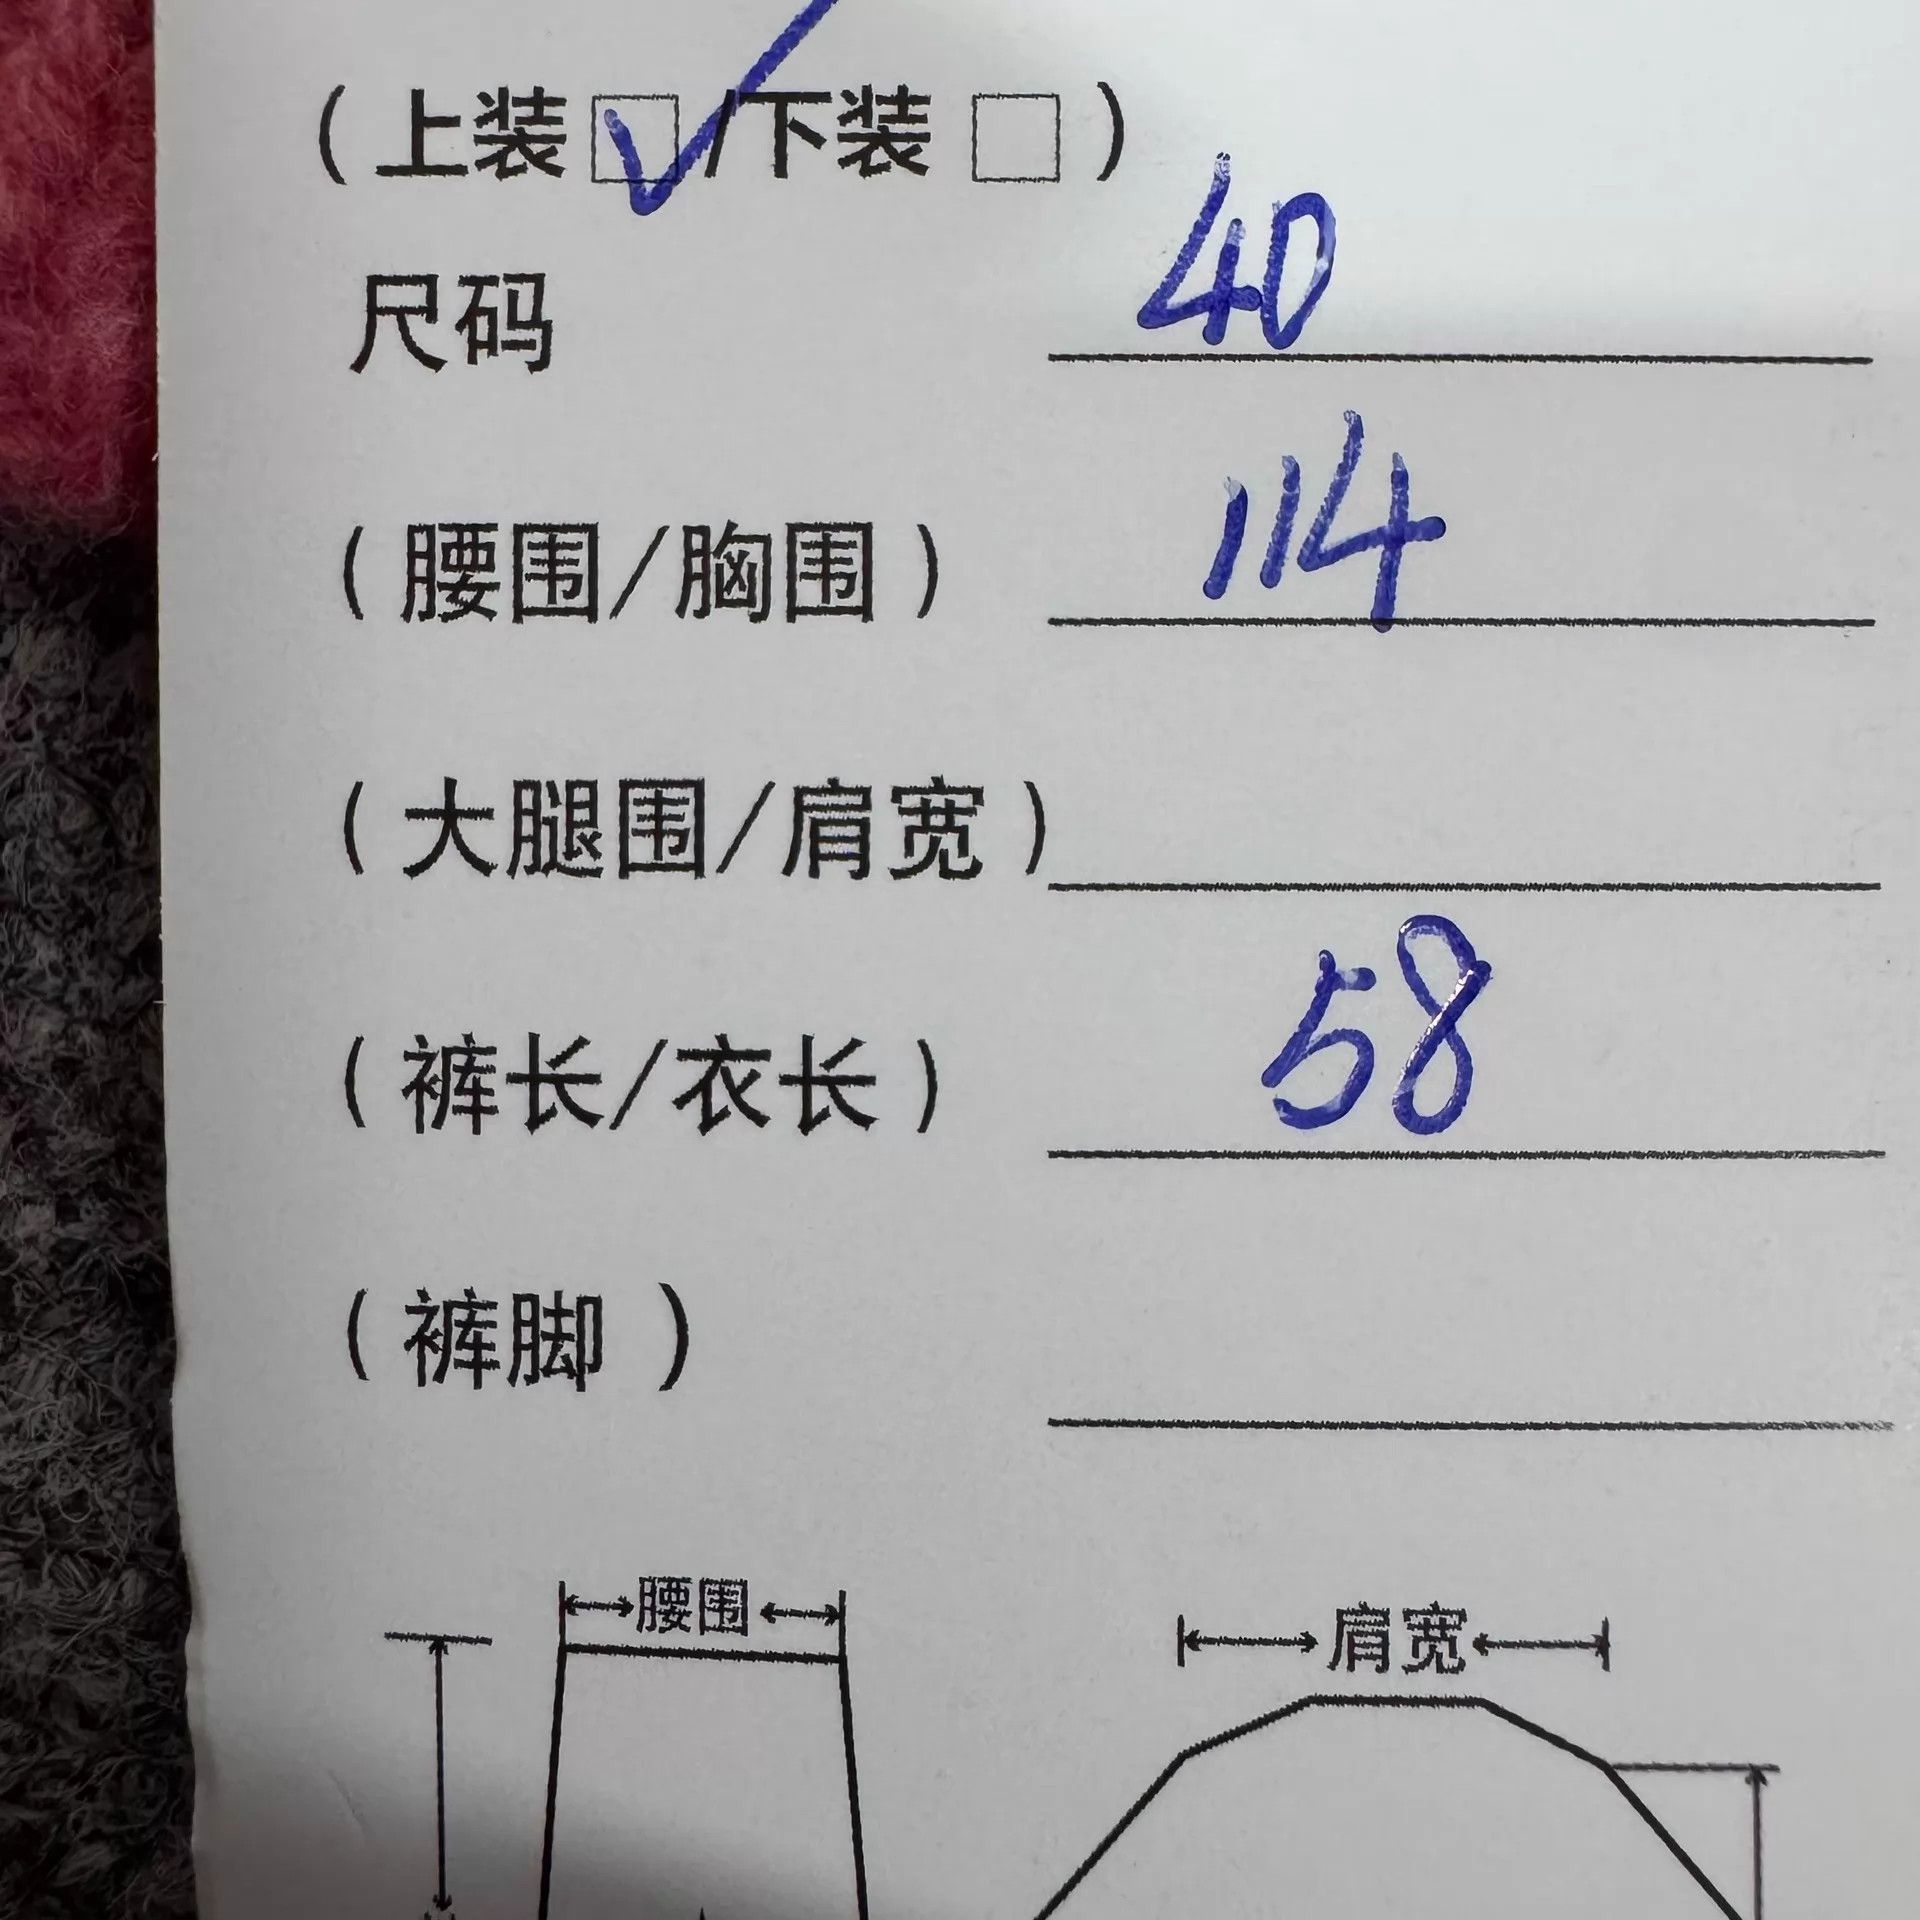 （上装□✓/下装□）
尺码 40
（腰围/胸围） 114
（大腿围/肩宽）
（裤长/衣长） 58
（裤脚 ）
腰围 肩宽